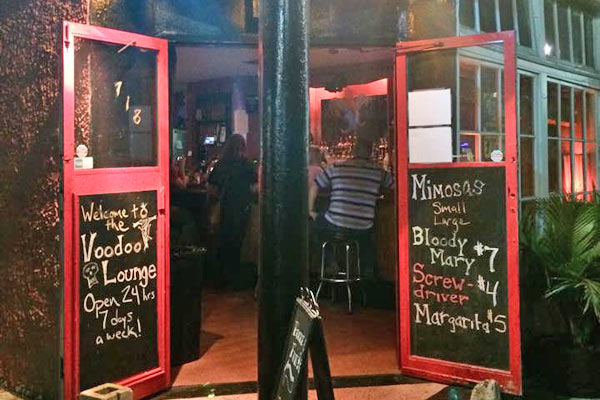 718
Welcome to
the
Voodoo
Lounge
Open 24 hrs
7 days
a week!
Mimosas
Small
Large
Bloody
Mary $7
Screw-
driver $4
Margarita $5